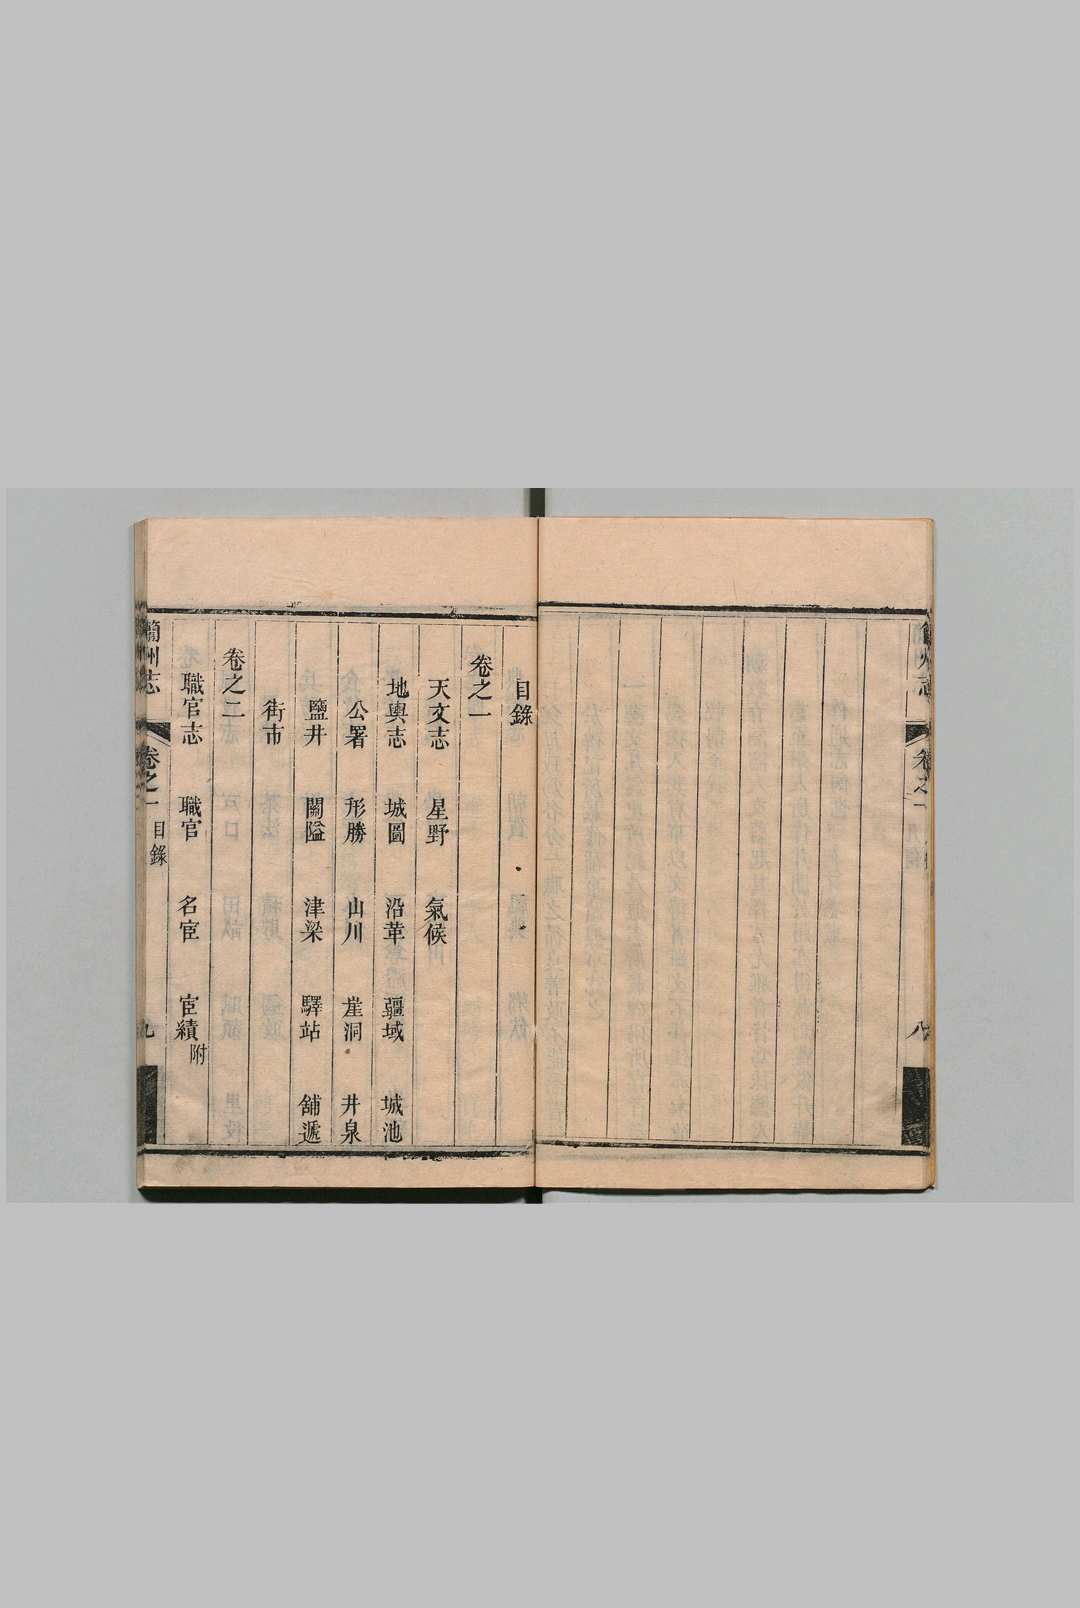 志
卷之一
八
目錄
卷之一
天文志 星野 氣候
地輿志 城圖 沿革 疆域 城池
公署 形勝 山川 崖洞 井泉
鹽井 關隘 津梁 驛站 舖遞
街市
卷之二
職官志 職官 名宦 宦績附
蘭州志 卷之一 目錄 九